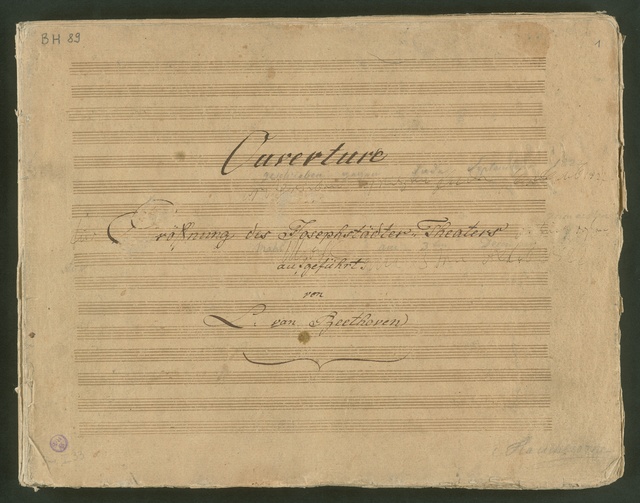 BH 89
1
Ouverture
Eröffnung des Josephstädter Theaters
aufgeführt.
von
L. van Beethoven